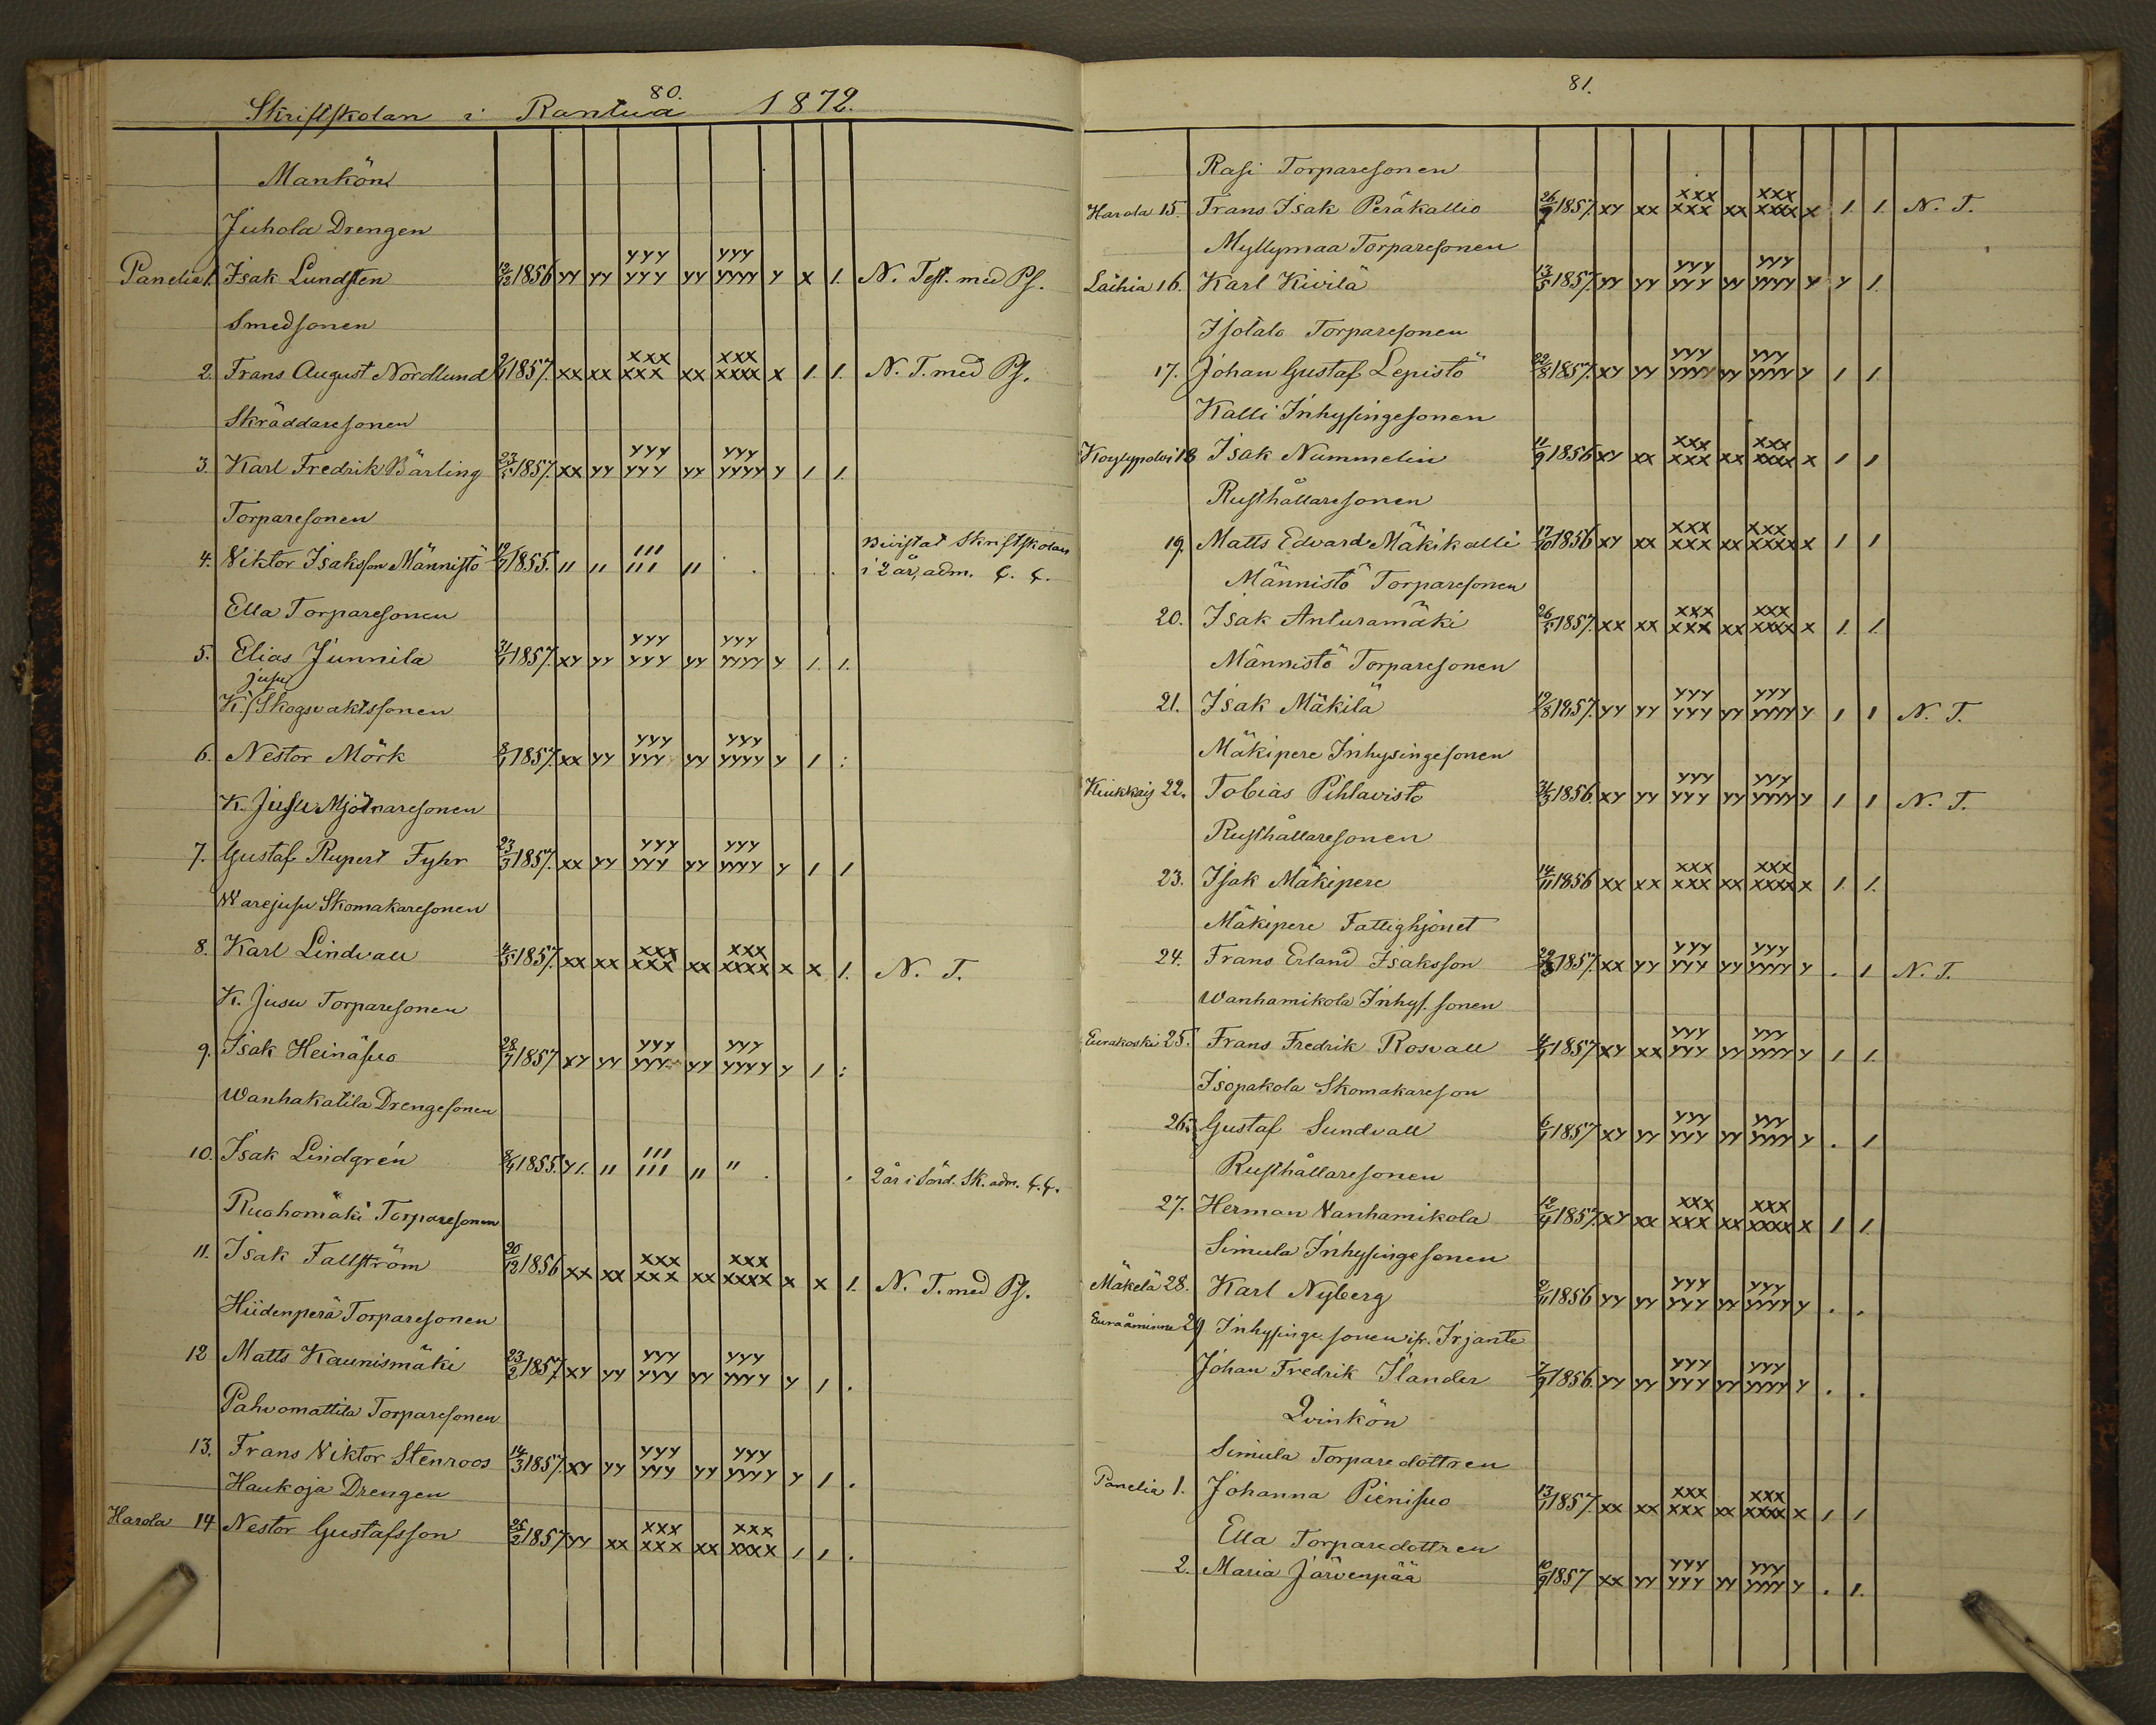 80.
Skriftskolan i Rantua 1872.
Mankön
Juhola Drengen
Panelia 1. Isak Lundsten 12/12 1856 yy yy yyy yyy yy yyy yyyy y x 1. N. Test. med Ps.
Smedsonen
2. Frans August Nordlund 1857. xx xx xxx xxx xx xxx xxxx x 1. 1. N. T. med Ps.
Skräddaresonen
3. Karl Fredrik Bärling 23/5 1857. xx yy yyy yyy yy yyy yyyy y 1 1.
Torparesonen
4. Viktor Isaksson Männistö 1855. " " ııı ııı " . . Bivistat Skriftskolan
i 2 år, adm.
Ella Torparesonen
5. Elias Junnila 31/1 1857. xy yy yyy yyy yy yyy yyyy y 1. 1.
Jusu
K. / Skogsvaktssonen
6. Nestor Mörk 8/1 1857. xx yy yyy yyy yy yyy yyyy y 1 :
K. Jusu Mjölnaresonen
7. Gustaf Rupert Fyhr 23/3 1857. xx yy yyy yyy yy yyy yyyy y 1 1
Warejusu Skomakaresonen
8. Karl Lindvall 4/5 1857. xx xx xxx xxx xx xxx xxxx x x 1. N. T.
K. Jusu Torparesonen
9. Isak Heinäsuo 28/7 1857 xy yy yyy yyy yy yyy yyyy y 1 :
Wanhakatila Drengesonen
10. Isak Lindgrén 1855. y1. " ııı ııı " " . . 2 år i Sönd. Sk. adm.
Ruohomäki Torparesonen
11. Isak Fallström 20/12 1856 xx xx xxx xxx xx xxx xxxx x x 1. N. T. med Ps.
Hiidenperä Torparesonen
12 Matts Kaunismäki 23/2 1857. xy yy yyy yyy yy yyy yyyy y 1 .
Pahvomattila Torparesonen
13. Frans Viktor Stenroos 14/3 1857. xy yy yyy yyy yy yyy yyyy y 1 .
Haukoja Drengen
Harola 14 Nestor Gustafsson 25/2 1857 yy xx xxx xxx xx xxx xxxx 1 1 .
81.
Rasi Torparesonen
Harola 15. Frans Isak Peräkallio 1857. xy xx xxx xxx xx xxx xxxx x 1. 1. N. T.
Myllymaa Torparesonen
Laihia 16. Karl Kivilä 13/5 1857. yy yy yyy yyy yy yyy yyyy y y 1.
Isotalo Torparesonen
17. Johan Gustaf Lepistö 22/8 1857. xy yy yyy yyyy yy yyy yyyy y 1 1.
Kalli Inhysingesonen
Köylypolvi 18 Isak Nummelin 11/9 1856 xy xx xxx xxx xx xxx xxxx x 1 1
Rusthållaresonen
19. Matts Edvard Mäkikalli 17/10 1856 xy xx xxx xxx xx xxx xxxx x 1 1
Männistö Torparesonen
20. Isak Anturamäki 26/5 1857. xx xx xxx xxx xx xxx xxxx x 1. 1.
Männistö Torparesonen
21. Isak Mäkilä 19/8 1857. yy yy yyy yyy yy yyy yyyy y 1 1 N. T.
Mäkipere Inhysingesonen
Kiukkais 22. Tobias Pihlavisto 31/3 1856. xy yy yyy yyy yy yyy yyyy y 1 1 N. T.
Rusthållaresonen
23. Isak Mäkipere 14/11 1856 xx xx xxx xxx xx xxx xxxx x 1. 1.
Mäkipere Fattighjonet
24. Frans Erland Isaksson 1857. xx yy yyy yyy yy yyy yyyy y . 1 N. T.
Wanhamikola Inhys. sonen
Eurakoski 25. Frans Fredrik Rosvall 4/1 1857 xy xx yyy yyy yy yyy yyyy y 1 1.
Isopakola Skomakareson
26. Gustaf Sundvall 6/1 1857 xy yy yyy yyy yy yyy yyyy y . 1
Rusthållaresonen
27. Herman Vanhamikola 12/4 1857. xy xx xxx xxx xx xxx xxxx x 1 1.
Simula Inhysingesonen
Mäkelä 28. Karl Nyberg 2/11 1856 yy yy yyy yyy yy yyy yyyy y . .
Euraåminne 29 Inhysinge sonen ifr. Irjante
Johan Fredrik Ilander 7/9 1856. yy yy yyy yyy yy yyy yyyy y . .
Qvinkön
Simula Torparedottren
Panelia 1. Johanna Pienisuo 13/1 1857. xx xx xxx xxx xx xxx xxxx x 1 1
Ella Torparedottren
2. Maria Järvenpää 10/9 1857 xx yy yyy yyy yy yyy yyyy y . 1.